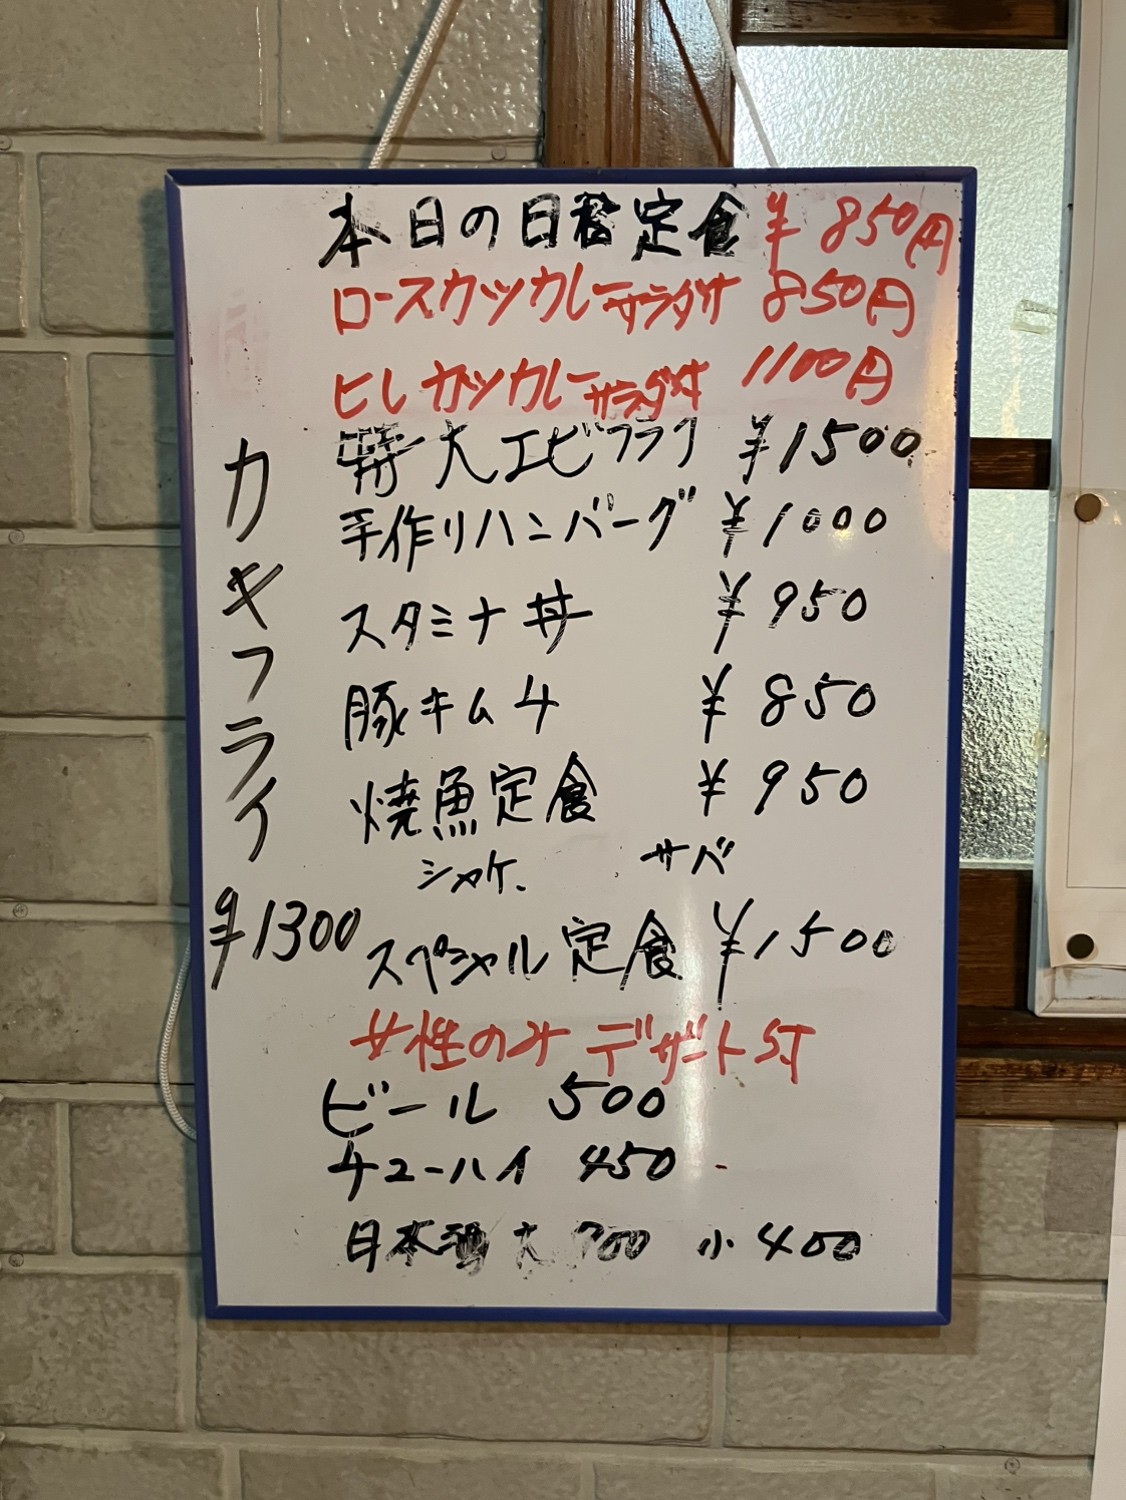 本日の日替定食 ¥850円
ロースカツカレーサラダ付 850円
ヒレカツカレーサラダ付 1100円
特大エビフライ ¥1500
手作りハンバーグ ¥1000
スタミナ丼 ¥950
豚キムチ ¥850
焼魚定食 ¥950
シャケ、サバ
スペシャル定食 ¥1500
女性のみデザート付
ビール 500
チューハイ 450
日本酒 大 700 小 400
カキフライ
¥1300